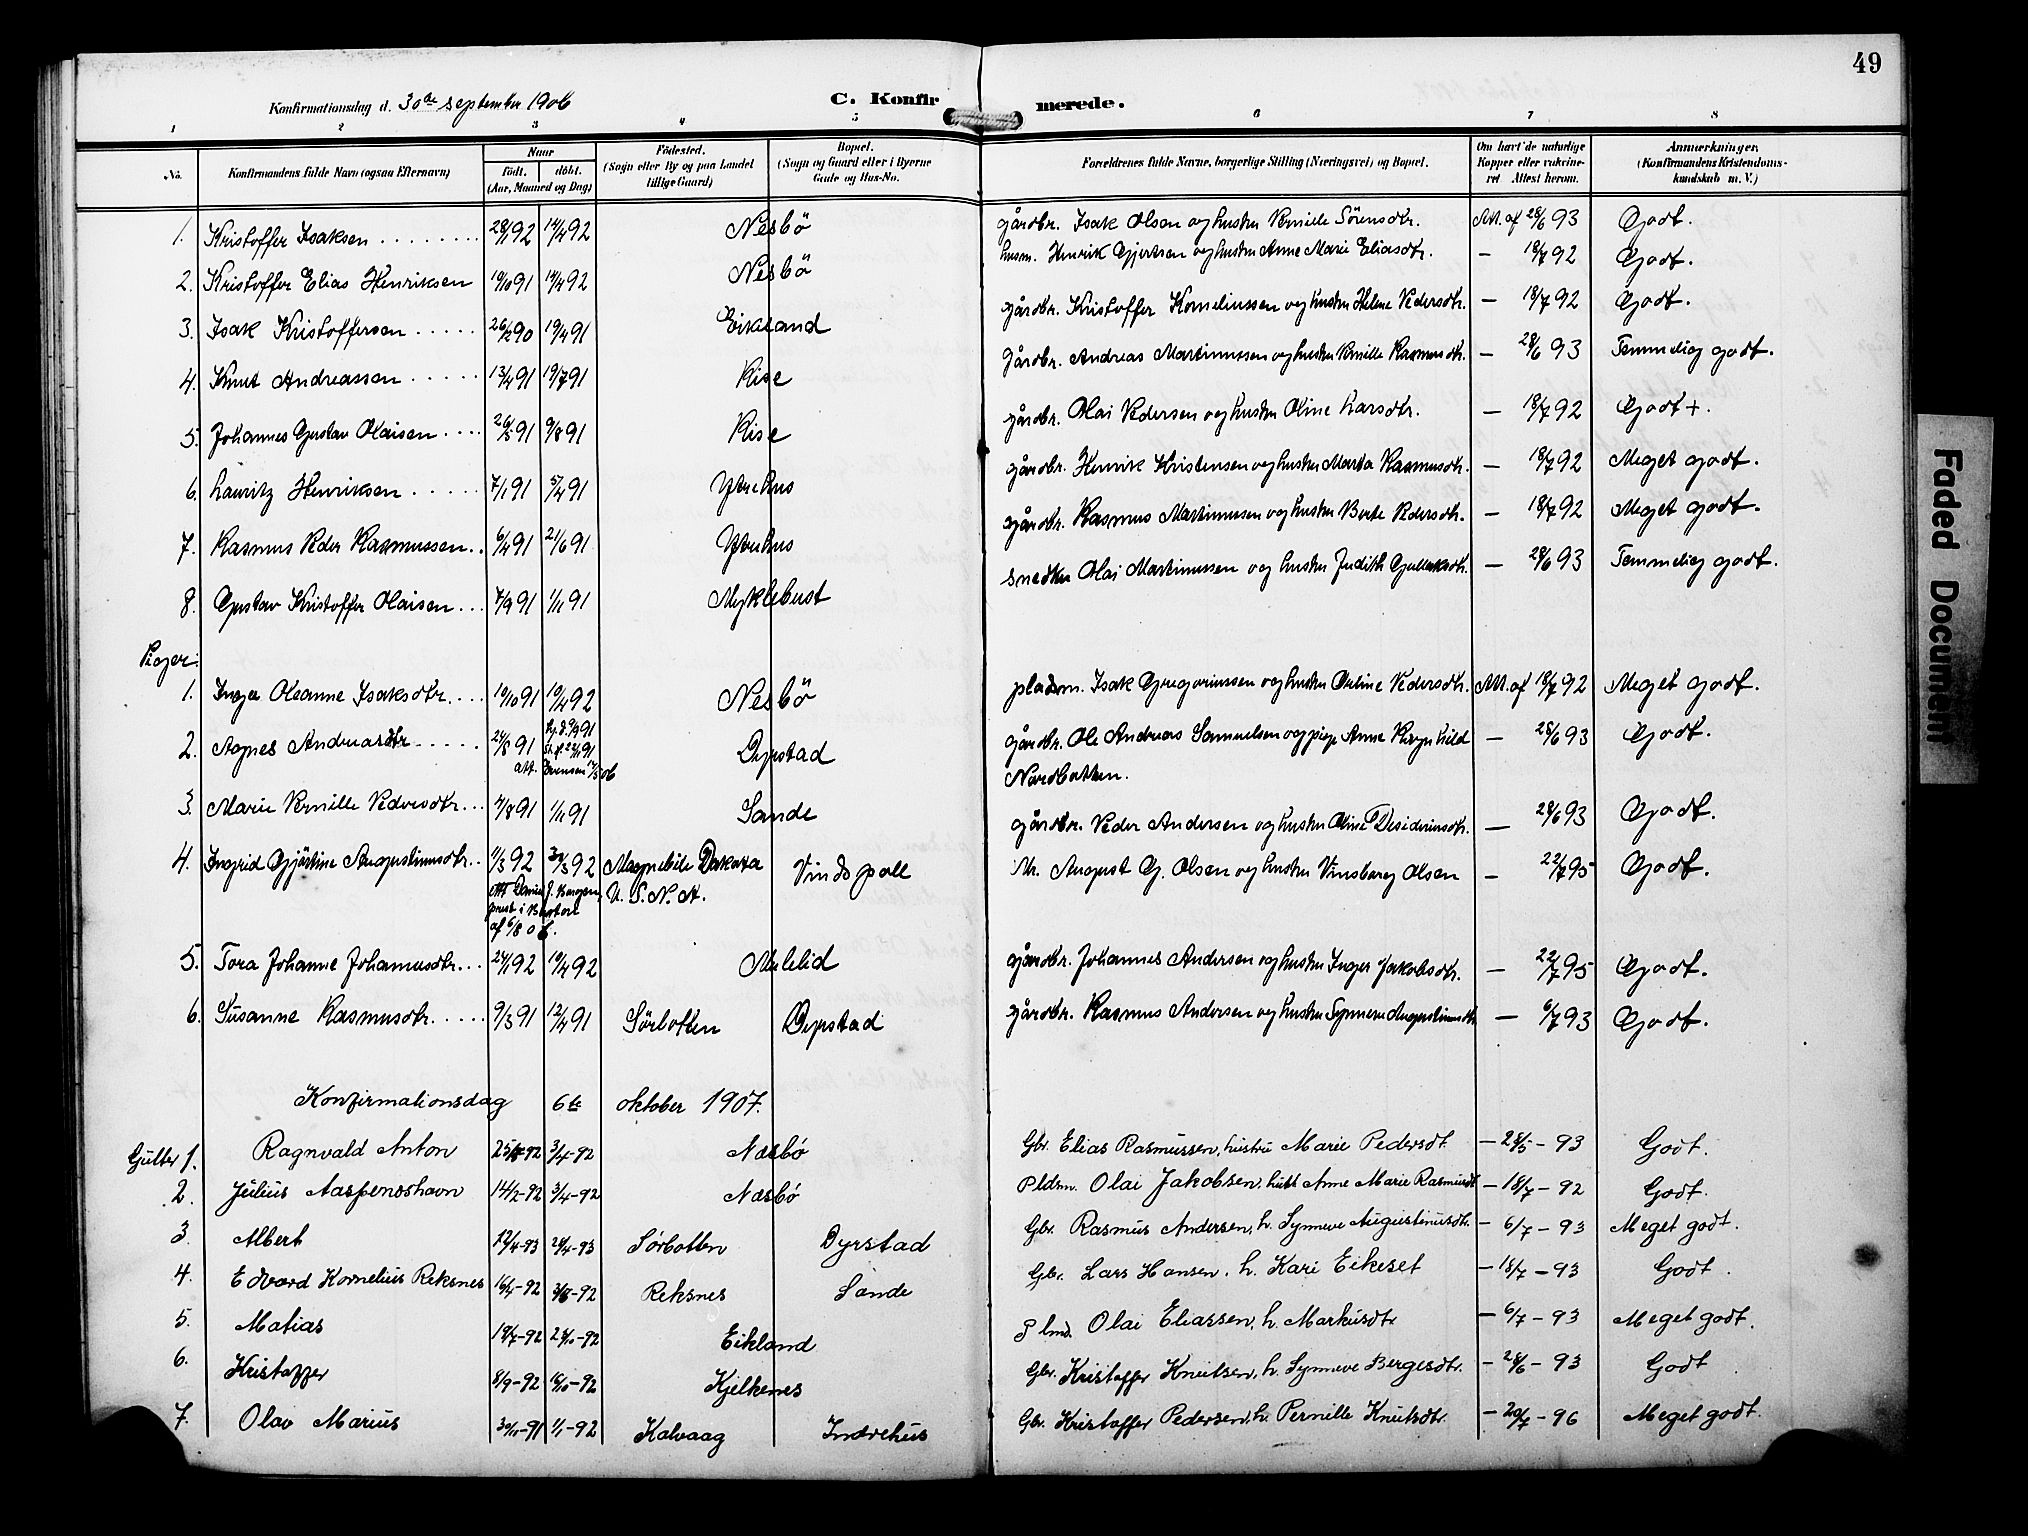 49
Konfirmationsdag d. 30de september 1906
C. Konfirmerede.
1 2 3 4 5 6 7 8
No. Konfirmandens fulde Navn (ogsaa Efternavn) Naar født. døbt. (Aar, Maaned og Dag) Fødested. (Sogn eller By og paa Landet tillige Gaard) Bopæl. (Sogn og Gaard eller i Byerne Gade og Hus-No. Forældrenes fulde Navne, borgerlige Stilling (Næringsvei) og Bopæl. Om havt de naturlige Kopper eller vaccineret Attest herom. Anmærkninger. (Konfirmandens Kristendomskundskab m. V.)
1. Kristoffer Isaksen 28/1 92 14/4 92 Nesbö gårdbr. Isak Olsen og hustru Pernille Sörensdtr. Att. af 28/6 93 Godt.
2. Kristoffer Elias Henriksen 19/10 91 14/4 92 Nesbö husm. Henrik Gjertsen og hustru Anne Marie Eliasdtr. — 18/7 92 Godt.
3. Isak Kristoffersen 26/12 90 19/4 91 Eikeland gårdbr. Kristoffer Korneliussen og hustru Helene Pedersdtr. — 18/7 92 Godt.
4. Knut Andreassen 13/4 91 19/7 91 Rise Gårdbr. Andreas Martinussen og hustru Pernille Rasmusdtr. — 28/6 93 Temmelig godt.
5. Johannes Gustav Olaisen 26/5 91 9/8 91 Rise gårdbr. Olai Pedersen og hustru Oline Larsdtr. — 18/7 92 Godt +.
6. Lauritz Henriksen 7/1 91 5/4 91 Ytrehus gårdbr. Henrik Kristensen og hustru Marta Rasmusdtr. — 18/7 92 Meget godt.
7. Rasmus Peder Rasmussen 6/4 91 21/6 91 Ytrehus gårdbr. Rasmus Martinussen og hustru Berte Pedersdtr. — 18/7 92 Meget godt.
8. Gustav Kristoffer Olaisen 7/9 91 1/11 91 Myklebust snedker Olai Martinussen og hustru Judith Gulleksdtr. — 28/6 93 Temmelig godt.
Piger:
1. Inga Olianne Isaksdtr. 10/10 91 10/4 92 Nesbö pladsm. Isak Gregoriussen og hustru Oline Pedersdtr. Att. af 18/7 92 Meget godt.
2. Agnes Andreasdtr. 24/8 91 Dyrstad gårdbr. Ole Andreas Samuelsen og pige Anne Brynhild — 28/6 93 Godt.
Nordbotten.
3. Marie Pernille Pedersdtr. 4/8 91 1/11 91 Sande gårdbr. Peder Andersen og hustru Oline Desideriusdtr. — 28/6 93 Godt.
4. Ingrid Gjärtine Augustinusdtr. 11/3 92 92 Dakota Vindspoll Mr. August G. Olsen og hustru Vinsborg Olsen — 22/7 95 Godt.
U. S. N. A.
prest i
af 6/8 06.
5. Tora Johanne Johannesdtr. 24/1 92 10/4 92 Mulelid gårdbr. Johannes Andersen og hustru Inger Jakobsdtr. — 22/7 95 Godt.
6. Susanne Rasmusdtr. 9/3 91 12/4 91 Sörbotten Dyrstad gårdbr. Rasmus Andersen og hustru Synneve Augustinusdtr — 6/7 93 Godt.
Konfirmationsdag 6te oktober 1907.
Gutter 1. Ragnvald Anton 92 3/4-92 Næsbø Gbr. Elias Rasmussen, hustru Marie Pedersdt. — 28/5 - 93 Godt.
2. Julius Aaspenshavn 14/2-92 3/4-92 Næsbø Pldsm. Olai Jakobsen, hust Anne Marie Rasmusdt — 18/7 - 92 Godt.
3. Albert 12/4-93 24/4-93 Sørbotten Dyrstad Gbr. Rasmus Andersen, h. Synneve Augustinusdtr. — 6/7 - 93 Meget godt.
4. Edvard Kornelius Reksnes 16/4-92 92 Reksnes Sande Gbr. Lars Hansen, h. Kari Eikeset — 18/7 - 93 Godt.
5. Matias 18/7-92 92 Eikland Plmd. Olai Eliassen, h. Markusdtr — 6/7 - 93 Meget godt.
6. Kristoffer 8/9-92 16/10-92 Kjelkenes Gbr. Kristoffer Knutsen, h. Synneve Bergesdtr. — 28/6 - 93 Godt
7. Olav Marius 30/11-91 1/1-92 Kalvaag Indrehus Gbr. Kristoffer Pedersen, h. Pernille Knutsdtr. — 20/7 - 96 Meget godt.
Faded Document